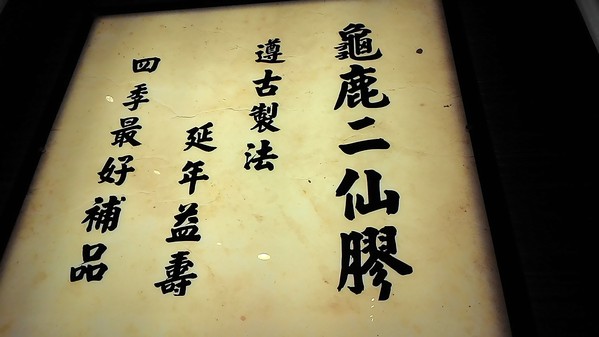 龜鹿二仙膠
遵古製法
延年益壽
四季最好補品